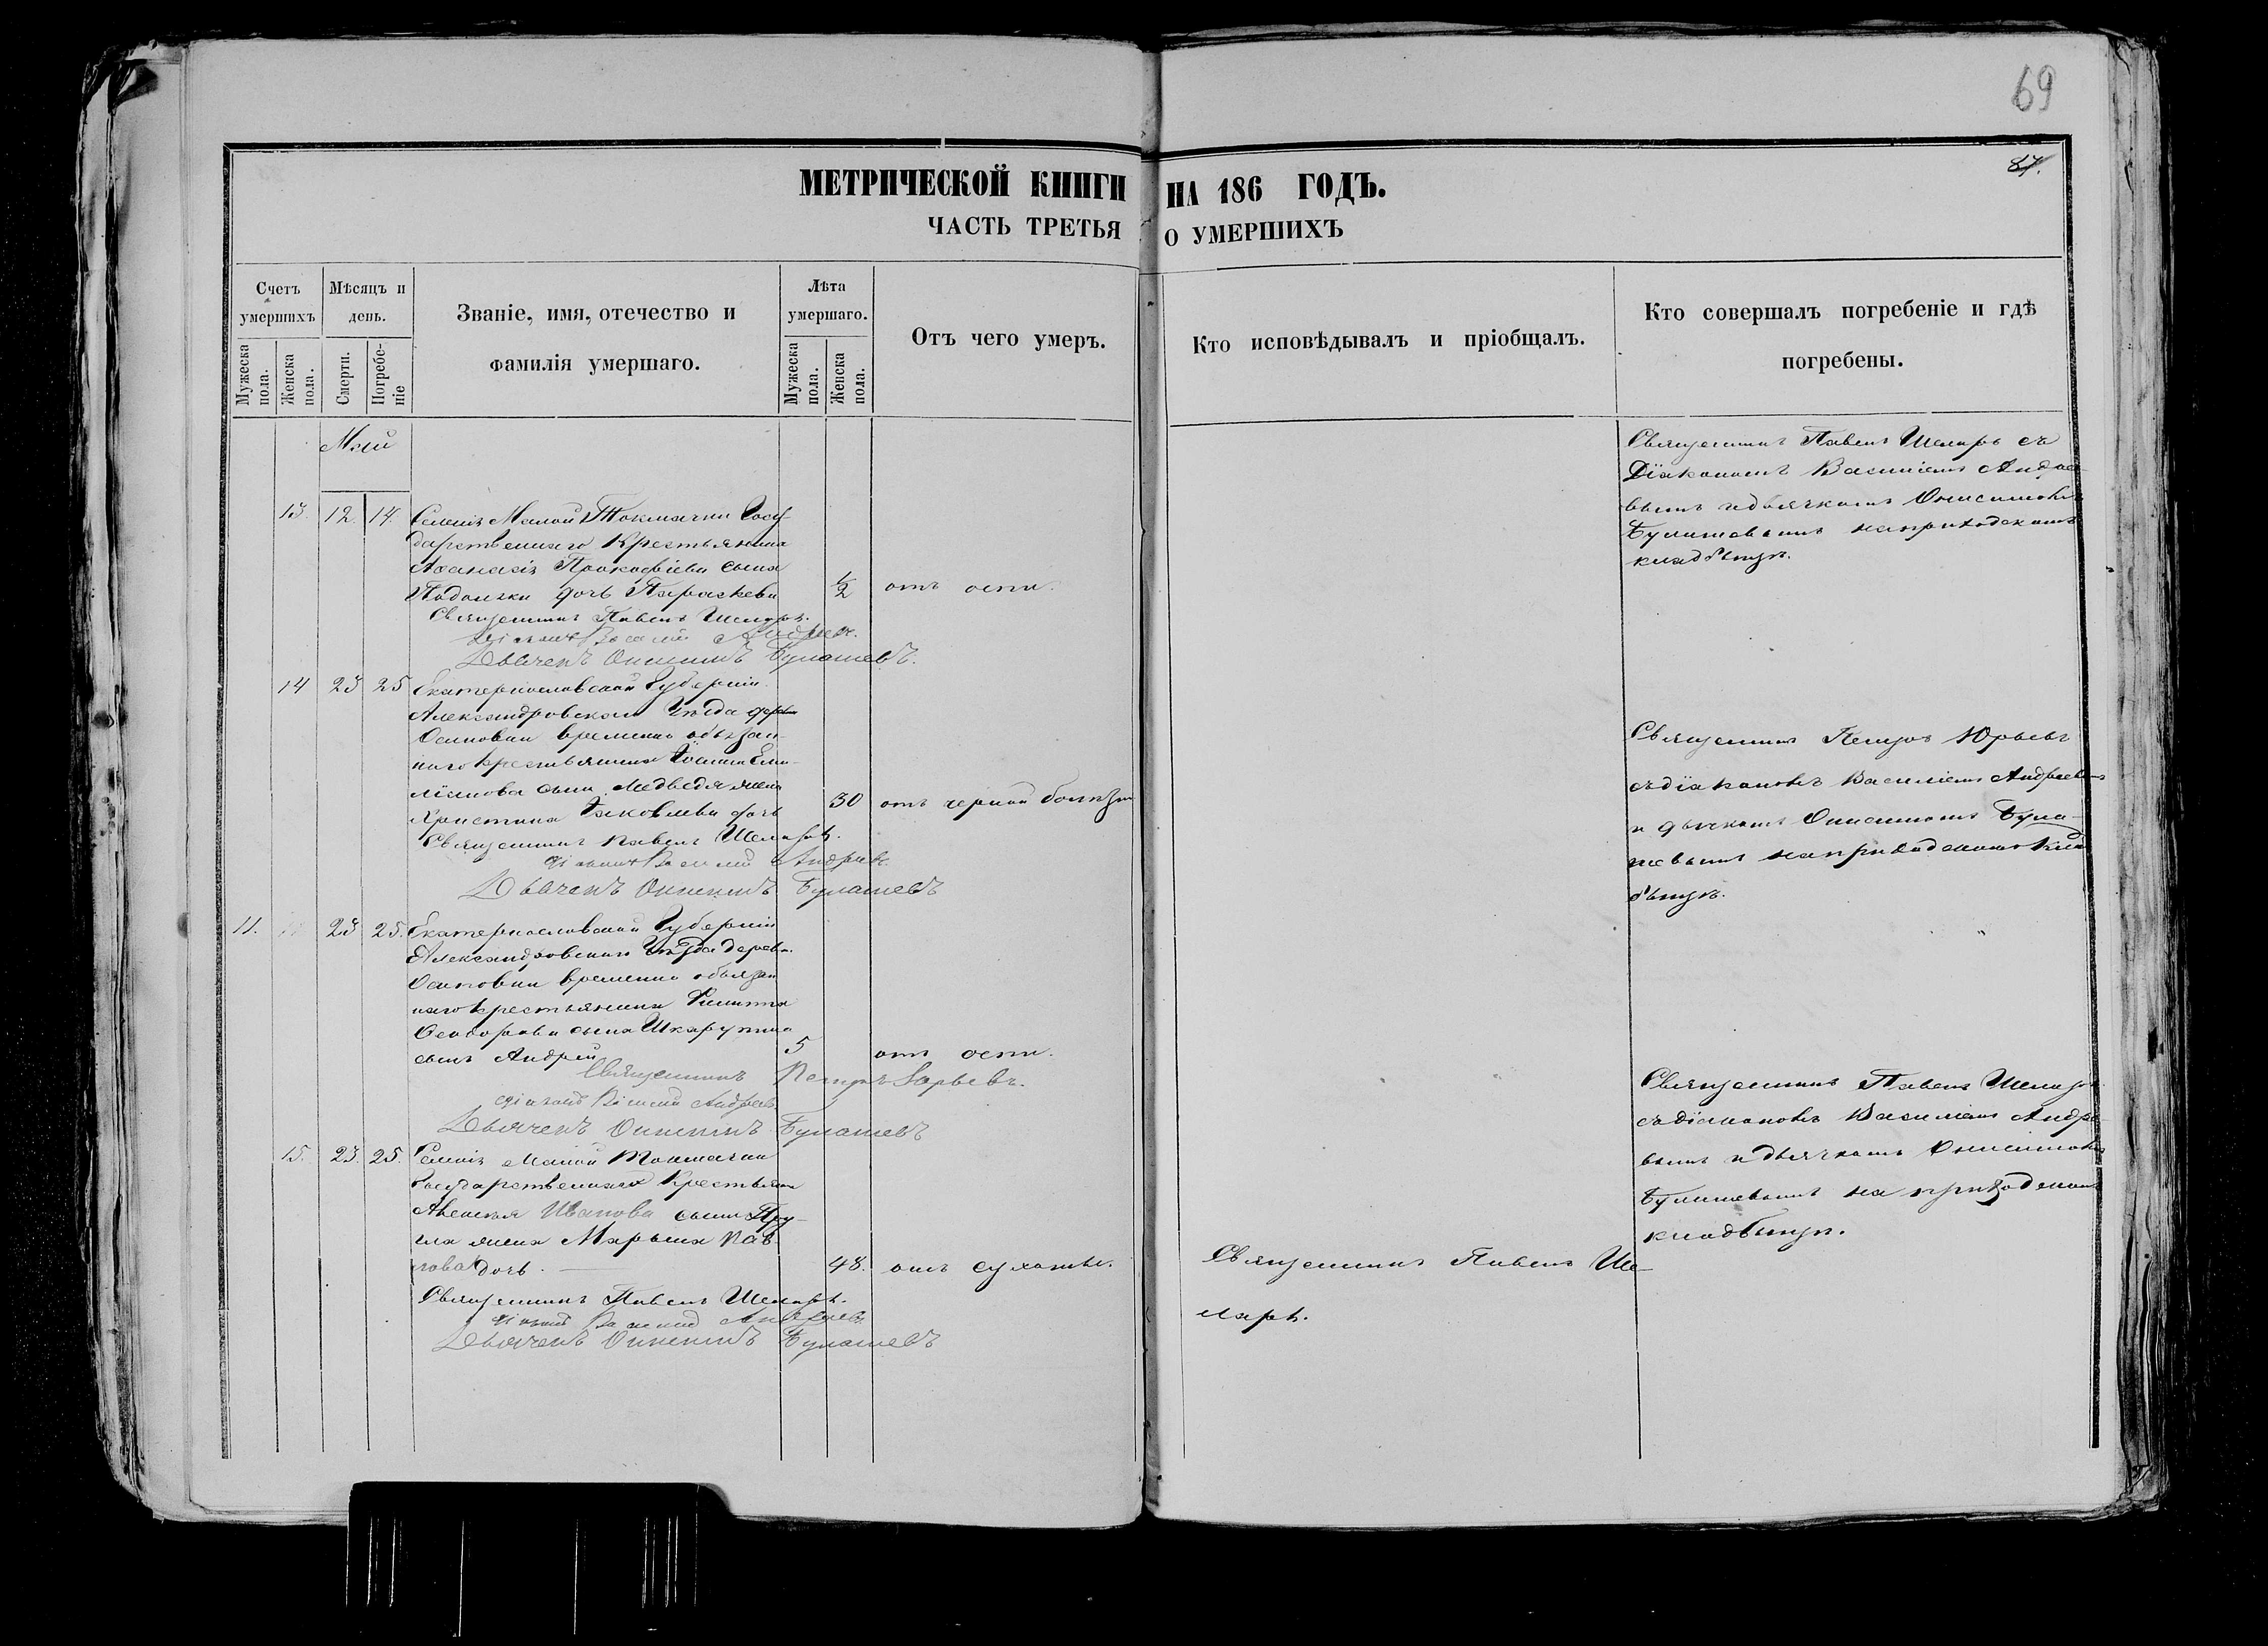 69
87.
МЕТРИЧЕСКОЙ КНИГИ НА 186 ГОДЪ.
ЧАСТЬ ТРЕТЬЯ О УМЕРШИХЪ
Счетъ умершихъ
Мѣсяцъ и день.
Званіе, имя, отечество и фамилія умершаго.
Лѣта умершаго.
Отъ чего умеръ.
Кто исповѣдывалъ и пріобщалъ.
Кто совершалъ погребеніе и гдѣ погребены.
Мужеска пола.
Женска пола.
Смерти.
Погребеніе
Мужеска пола.
Женска пола.
Май
13. 12. 14. Селенія Малой Токмачки Госу-
дарственнаго Крестьянина
Афанасія Прокофіева сына
дочь Параскева ½ отъ оспы.
Священникъ Павелъ
Діаконъ Василій Андреев
Дьячекъ Онисимъ Булашевъ.
Священникъ Павелъ съ
Діакономъ Василіемъ Андрее-
вымъ и дьячкомъ Онисимомъ
Булашевымъ на приходскомъ
кладбищѣ.
14 23 25 Екатеринославской Губерніи
Александровскаго Уѣзда
Осиповки временно обязан-
наго крестьянина
сына Медведя жена
Христина Яковлева дочь 30 отъ черной болѣзни
Священникъ Павелъ
Діаконъ Василій Андреев
Дьячекъ Онисимъ Булашевъ
Священникъ Петръ Юрьевъ
съ діакономъ Василіемъ Андреевымъ
и дьячкомъ Онисимомъ Була-
шевымъ на приходскомъ клад-
бищѣ.
11. 23 25. Екатеринославской Губерніи
Александровскаго Уѣзда дерев.
Осиповки временно обязан
наго крестьянина Филиппа
Феодорова сына
сынъ Андрей 5 отъ оспы.
Священникъ Петръ Юрьевъ.
діаконъ Василій Андреев
Дьячекъ Онисимъ Булашевъ
Священникъ Павелъ
съ діакономъ Василіемъ Андре-
вымъ и дьячкомъ Онисимомъ
Булашевымъ на приходскомъ
кладбищѣ.
15. 23. 25. Селенія Малой Токмачки
Государственнаго Крестьянина
Иванова сына
жена Марьяна Пав-
лова дочь. 48. отъ сухотки.
Священникъ Павелъ
діаконъ Василій Андреев
Дьячекъ Онисимъ Булашевъ
Священникъ Павелъ Ше-
ларь.